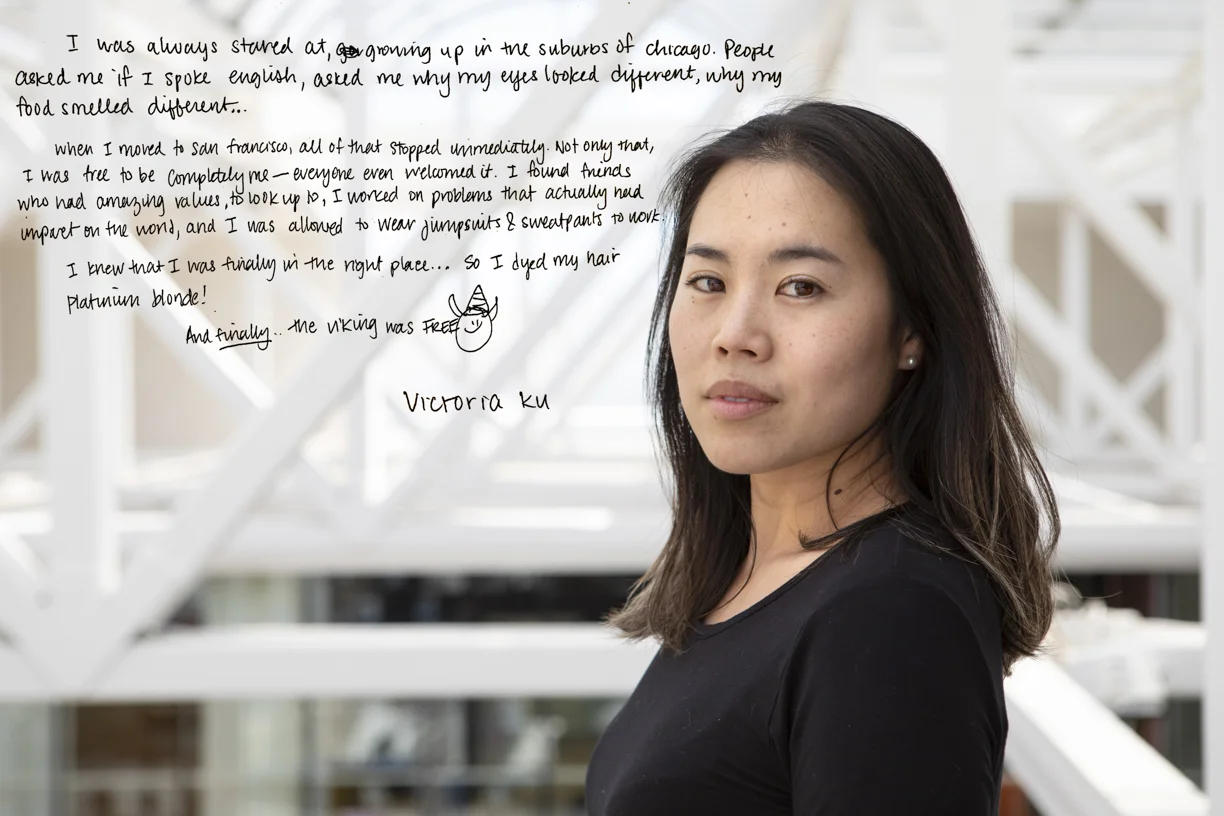 I was always stared at, growing up in the suburbs of chicago. People
asked me if I spoke english, asked me why my eyes looked different, why my
food smelled different...
when I moved to san francisco, all of that stopped immediately. Not only that,
I was free to be completely me – everyone even welcomed it. I found friends
who had amazing values, to look up to, I worked on problems that actually had
impact on the world, and I was allowed to wear jumpsuits & sweatpants to work.
I knew that I was finally in the right place... so I dyed my hair
platinum blonde!
And finally.. the viking was FREE
Victoria Ku